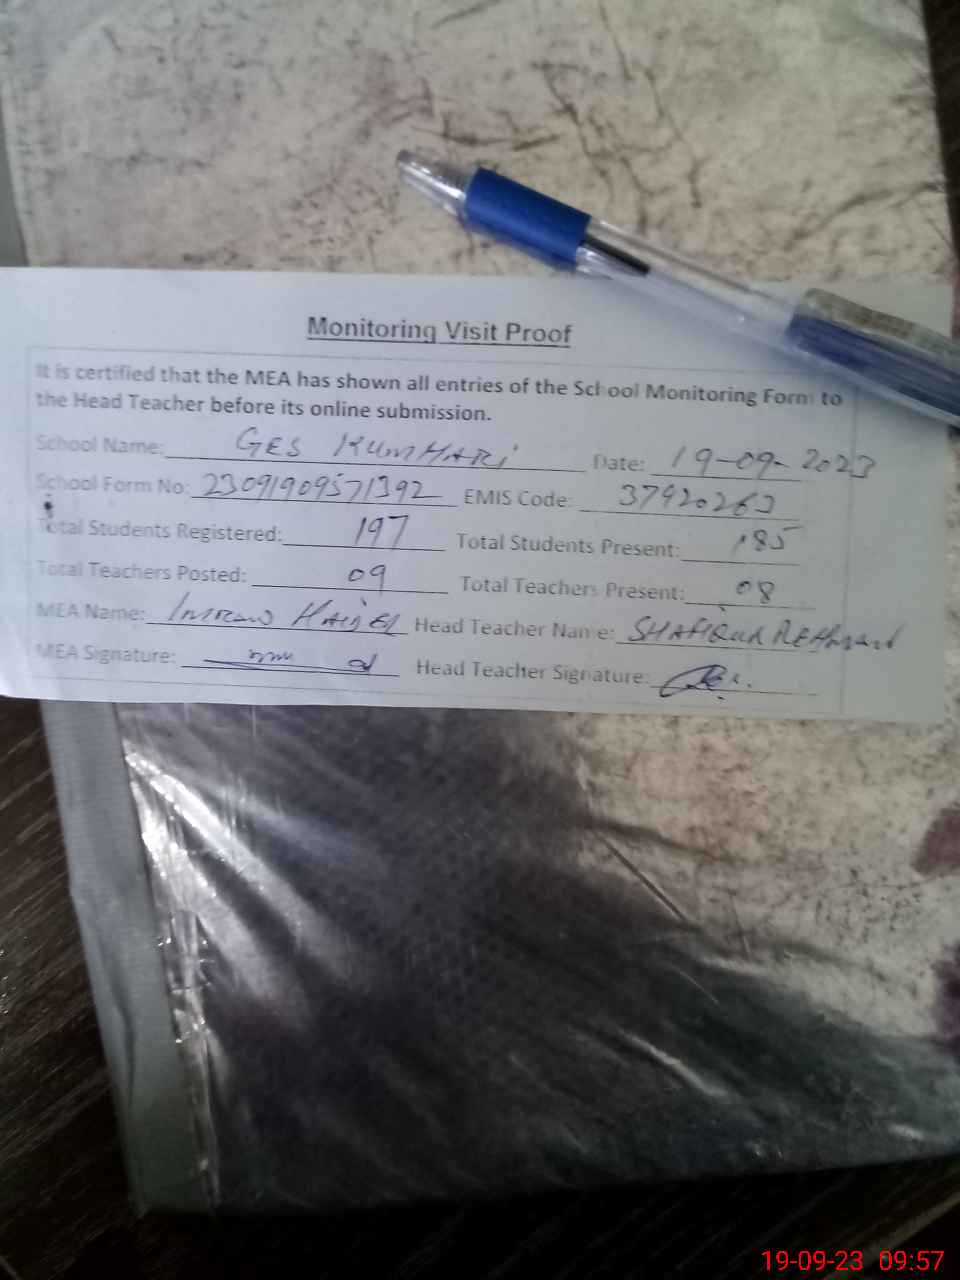 Monitoring Visit Proof
It is certified that the MEA has shown all entries of the School Monitoring Form to
the Head Teacher before its online submission.
School Name: GES KUMHARI Date: 19-09-2023
School Form No: 23091909571392 EMIS Code: 37920263
Total Students Registered: 197 Total Students Present: 185
Total Teachers Posted: 09 Total Teachers Present: 08
MEA Name: Head Teacher Name: SHAFIQUR REHMAN
MEA Signature: Head Teacher Signature:
19-09-23 09:57